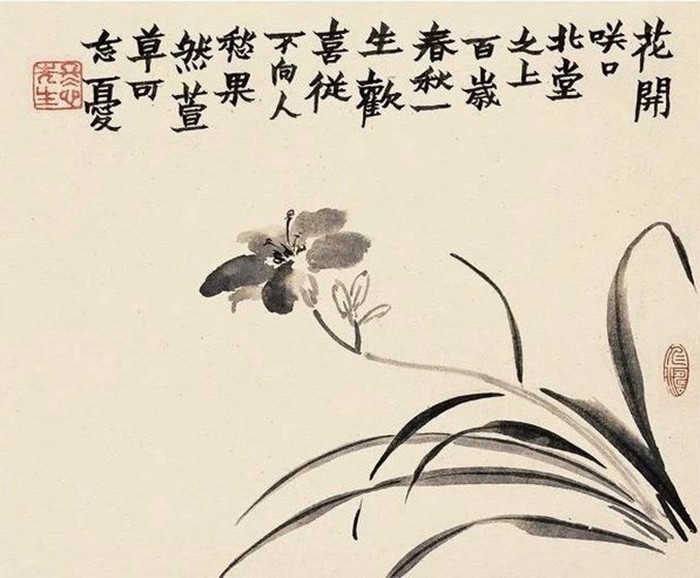 花開
咲口
北堂
之上
百歲
春秋一
生歡
喜從
不向人
愁果
然萱
草可
忘憂
冬心先生